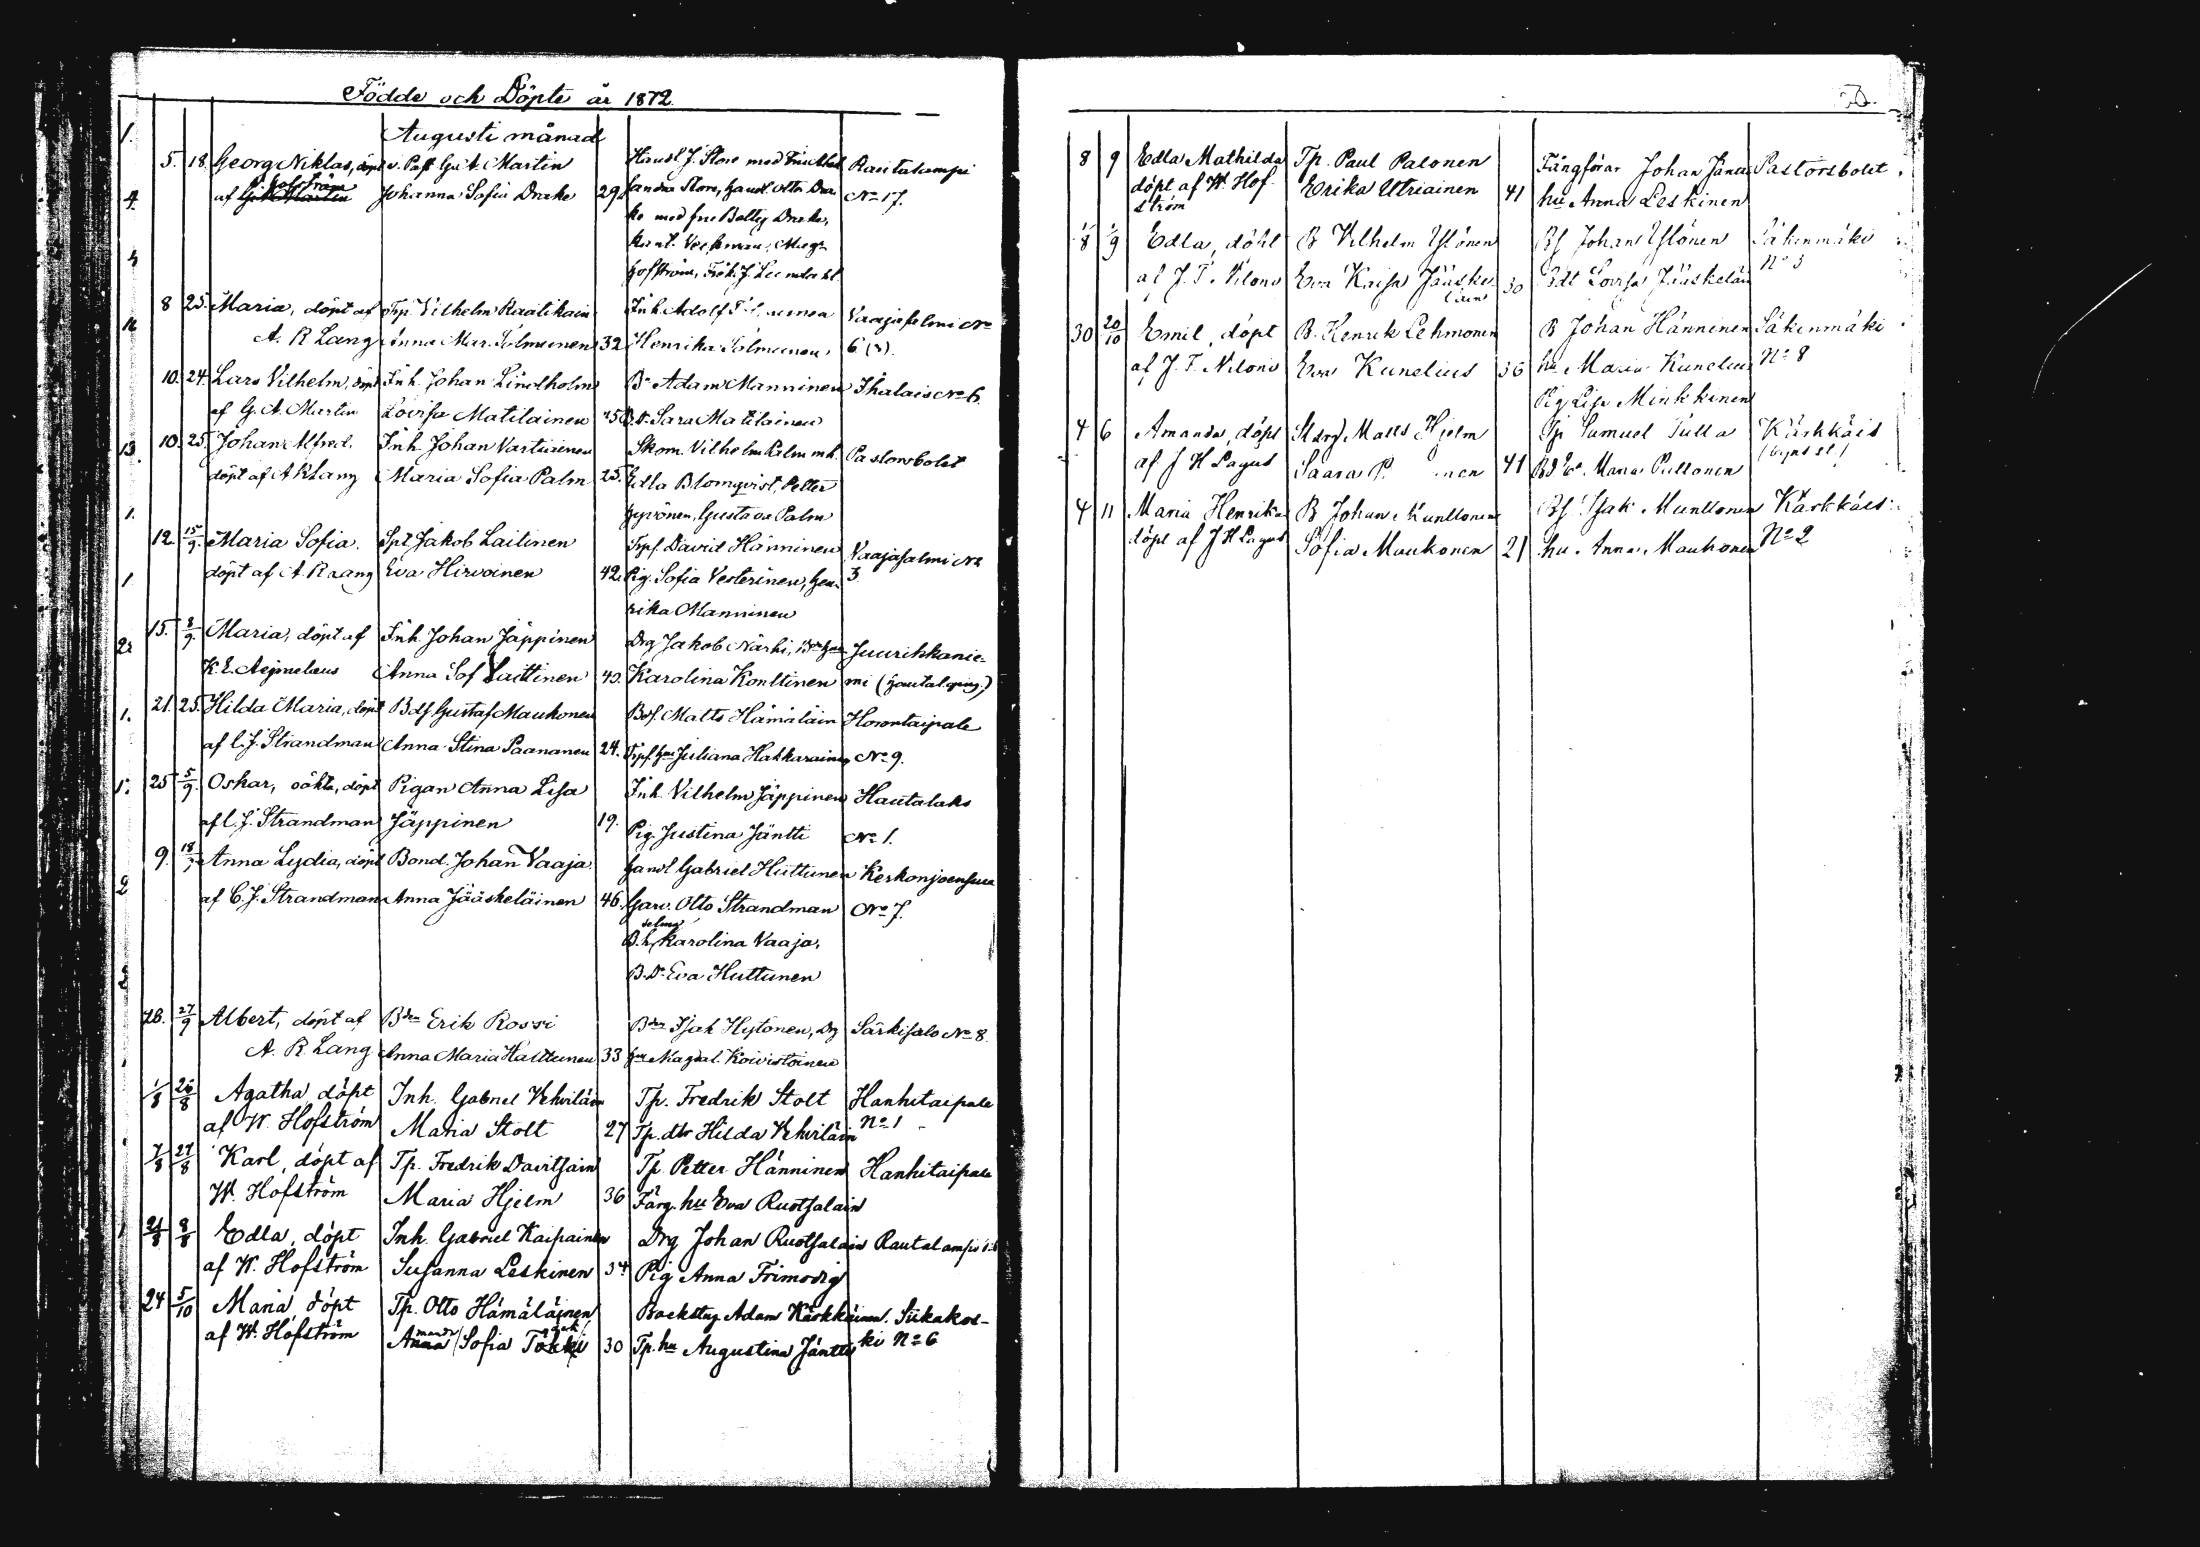 Födde och Döpte år 1872.
Augusti månad
5. 18. Georg Niklas, döpt v. Past. G. A. Martin Handl. J. Store med Rautalampi
af Hofström G. A. Martin Johanna Sofia Drake 29. Sandra Store, Handl. Otto Dra- No 17.
ke med fru Betty Drake,
Hofström, Frök. J.
8 25. Maria, döpt af Trp Vilhelm Raatikain Inh. Adolf Vaajasalmi No
A. R Lang Anna Mar. Tolmunen 32 Henrika Tolmunen 6 (3).
10. 24. Lars Vilhelm, döpt Inh. Johan Lindholm Br Adam Manninen Ihalais No 6.
af G. A. Martin Lovisa Matilainen 35 B.d. Sara Matilainen
10. 25. Johan Alfred. Inh. Johan Vartiainen Skom. Vilhelm Palm Pastorsbolet
döpt af A R Lang Maria Sofia Palm 25. Edla Blomqvist, Petter
Hyvönen, Gustava Palm
12 15/9. Maria Sofia. Spt Jakob Laitinen Trpf. David Hänninen Vaajasalmi No
döpt af A. R Lang Eva Hirvoinen 42. Pig. Sofia Vesterinen, Hen- 3.
rika Manninen
15. 8/9. Maria, döpt af Inh. Johan Jäppinen Drg Jakob Närhi, Juurikkanie-
K. E. Aejmelæus Anna Sof Laitinen 43. Karolina Konttinen mi
21. 25. Hilda Maria, döpt Bdf. Gustaf Maukonen Bdf. Matts Hämäläin Horontaipale
af C. J. Strandman Anna Stina Paananen 24. Trpf. hu Juliana Hakkarainen No 9.
25 5/9. Oskar, oäkta, döpt Pigan Anna Lisa Inh. Vilhelm Jäppinen Hautalaks
af C. J. Strandman Jäppinen 19. Pig. Justina Jäntti No 1.
9. 18 Anna Lydia, döpt Bond. Johan Vaaja. Handl Gabriel Huttunen Kerkonjoensuu
af C. J. Strandman Anna Jääskeläinen 46. Garv. Otto Strandman No 7.
Selma
B. h. Karolina Vaaja,
B. D. Eva Huttunen
28. 27/9 Albert, döpt af Bden Erik Rossi Bden Isak Hytönen, Drg Särkisalo No 8.
A. R. Lang Anna Maria Halttunen 33 hu Magdal. Koivistoinen
1/8 26/8 Agatha, döpt Inh. Gabriel Vehviläin Tp. Fredrik Stolt Hanhitaipale
af W. Hofström Maria Stolt 27 Tp. dtr Hilda Vehviläin No 1
7/8 27/8 Karl, döpt af Tp. Fredrik Davitsain Tp. Petter Hänninen Hanhitaipale
W. Hofström Maria Hjelm 36 Färg. hu Eva Ruotsalain
21/8 8/8 Edla, döpt Inh. Gabriel Kaipainen Drg Johan Ruotsalain Rautalampi
af W. Hofström Susanna Leskinen 34 Pig Anna Frimodig
24 5/10 Maria, döpt Tp. Otto Hämäläinen Backstug Adam Kärkkäinen. Siikakos-
af W. Hofström Anna Sofia 30 Tp. hu Augustina Jäntti ki No 6
8 9 Edla Mathilda Tp. Paul Palonen Fångförar Johan Jäntti Pastorsbolet
döpt af W. Hof- Erika Utriainen 41 hu Anna Leskinen
ström
1/8 1/9 Edla, döpt B Vilhelm Ylönen Bf Johan Ylönen Säkinmäki
af J. F. Eva Kaisa Jääske- 30 Bdt Lovisa Jääskeläin No 3
läin
30 20/10 Emil, döpt B. Henrik Lehmonen B Johan Hänninen Säkinmäki
af J. F. Eva Kunelius 36 hu Maria Kunelius No 8
Pig Lisa Minkkinen
4 6 Amanda, döpt Matts Hjelm Tp Samuel Tulla Kärkkäis
af J H Lagus Saara 41 Maria Puttonen
4 11 Maria Henrika B Johan Munttonen Bf Isak Munttonen Kärkkäis
döpt af J H Lagus Sofia Maukonen 21 hu. Anna Maukonen No 2